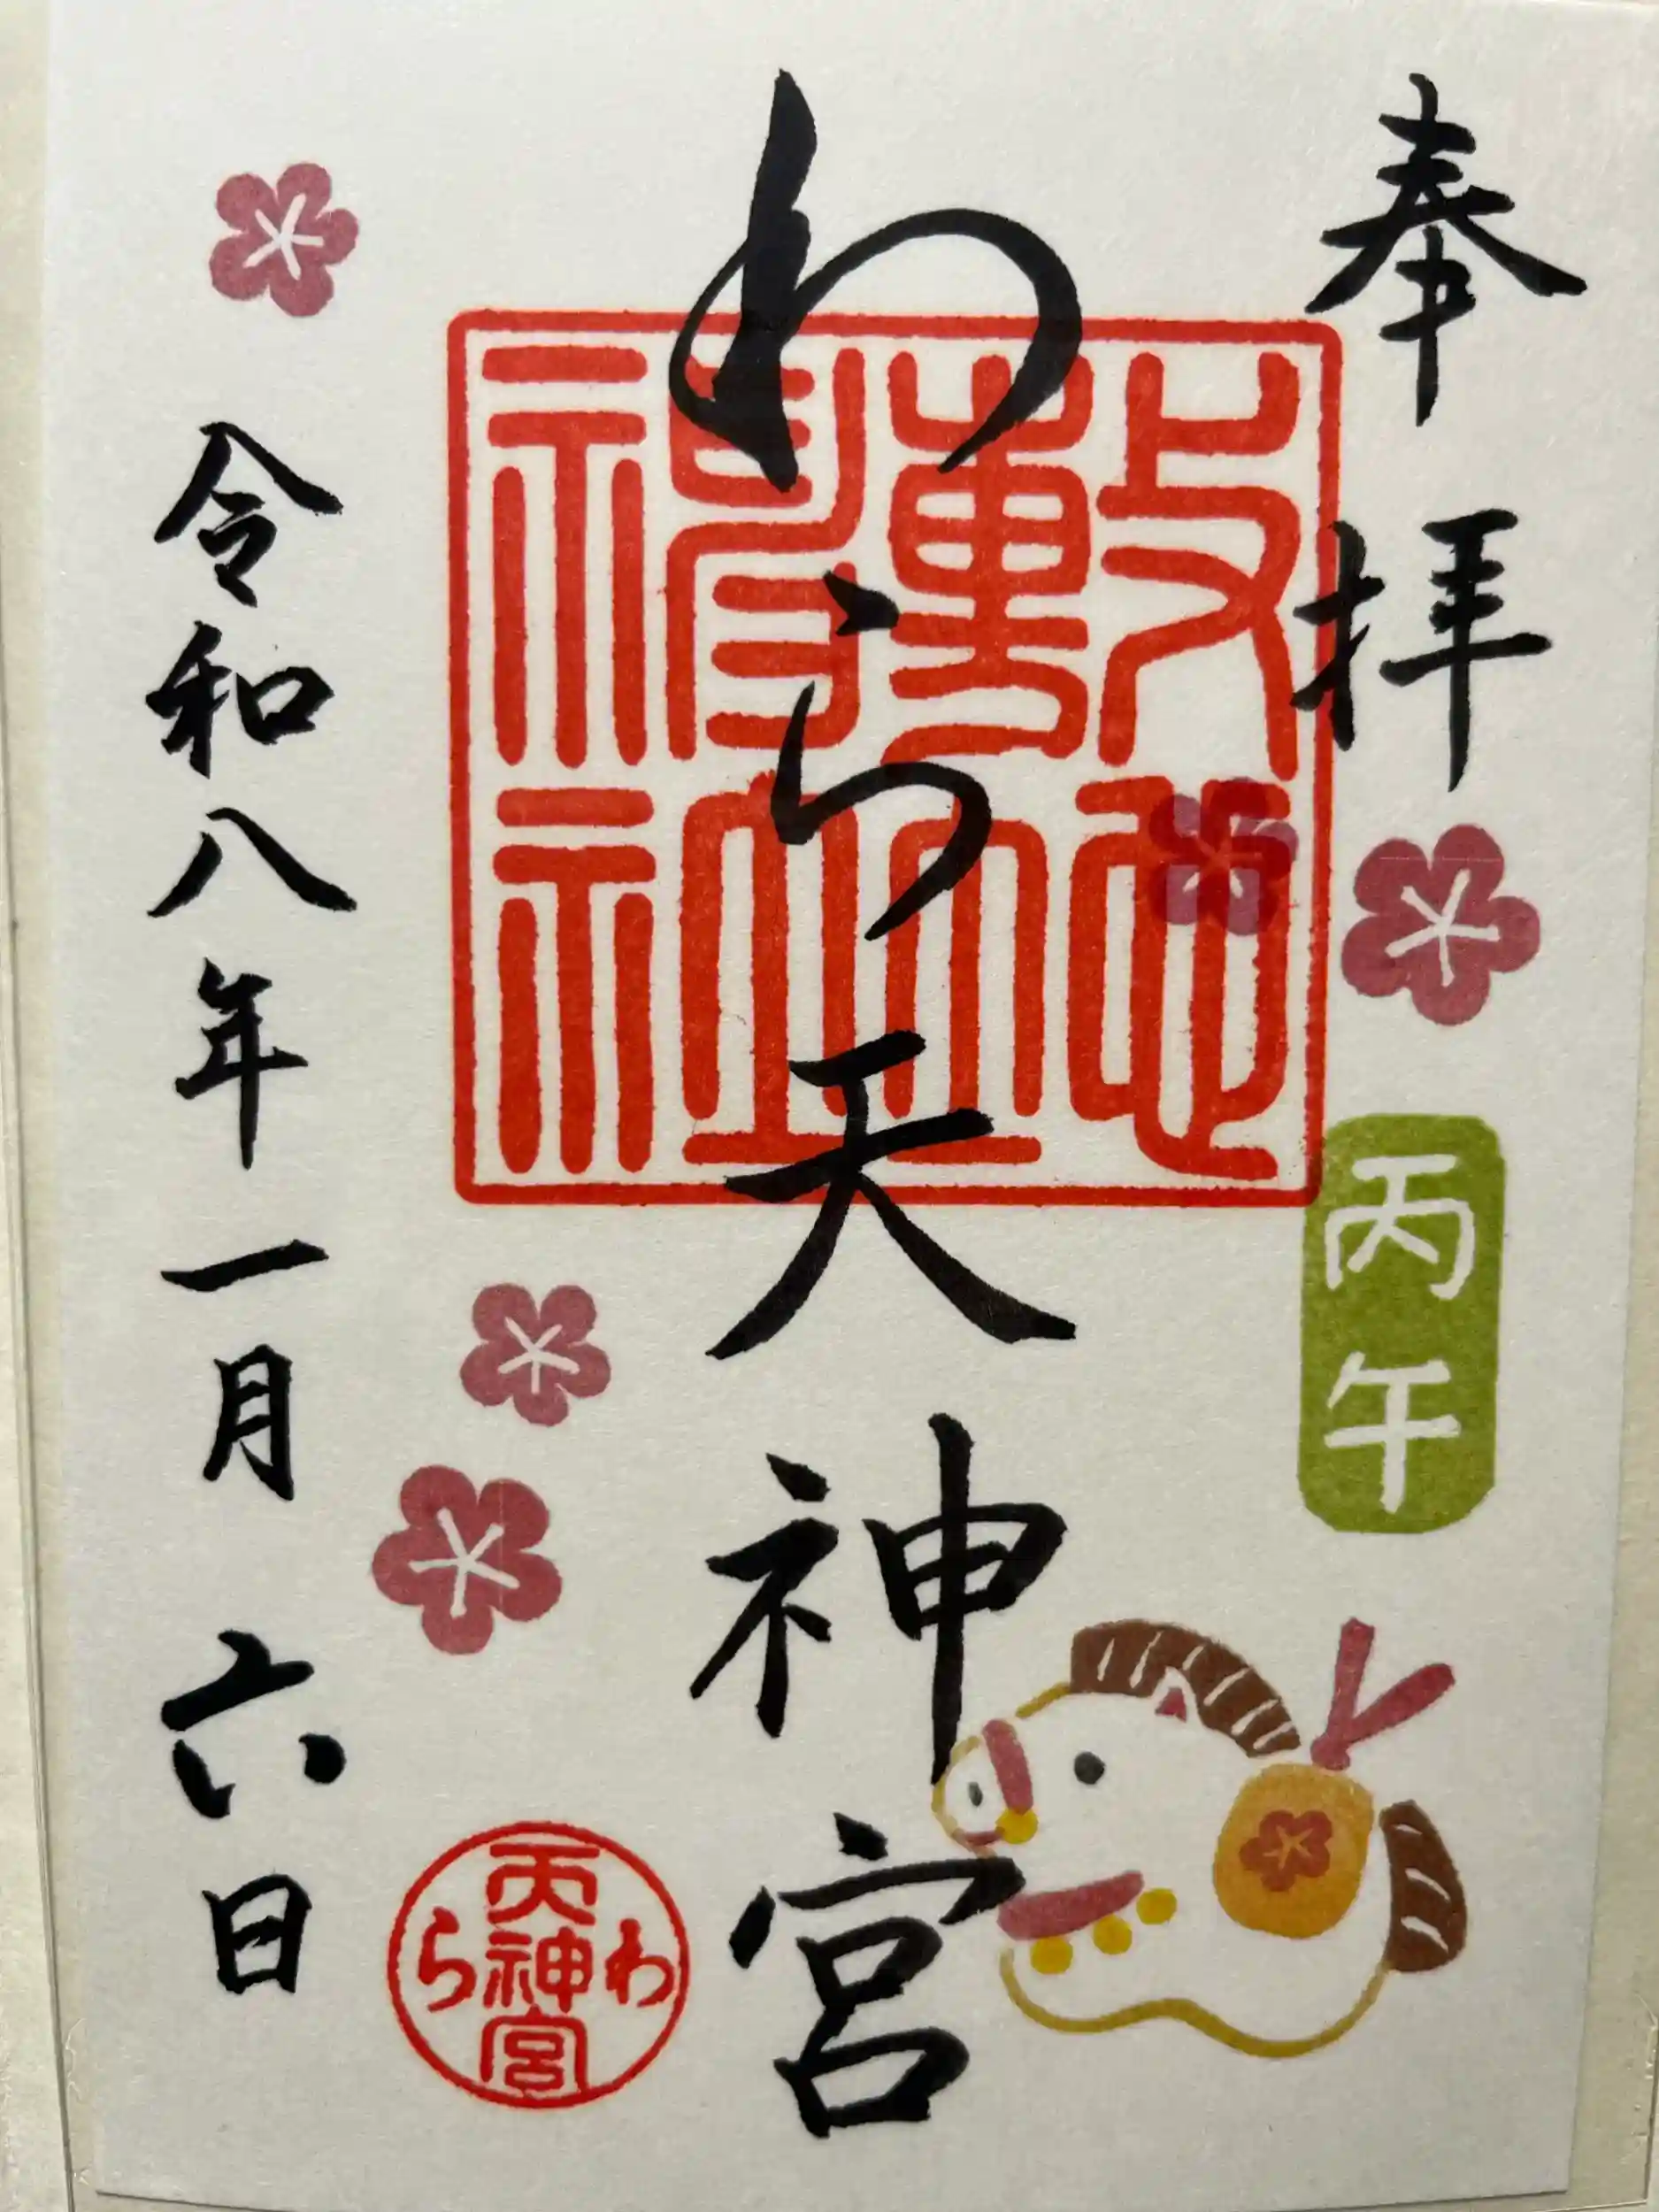 奉拝
丙午
わら天神宮
わら
天神宮
令和八年一月六日